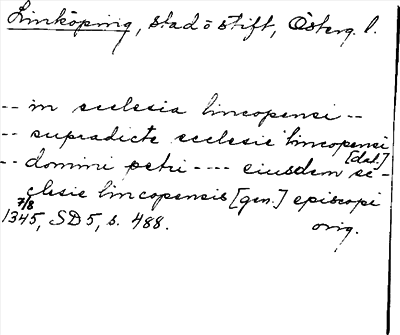 Linköping, stad o stift, Österg. l.
-- in ecclesia lincopensi --
-- supradicte ecclesie lincopensi
[dat.]
-- domini petri ---- eiusdem ec-
clesie lincopensis [gen.] episcopi
7/8
1345, SD 5, s. 488. orig.